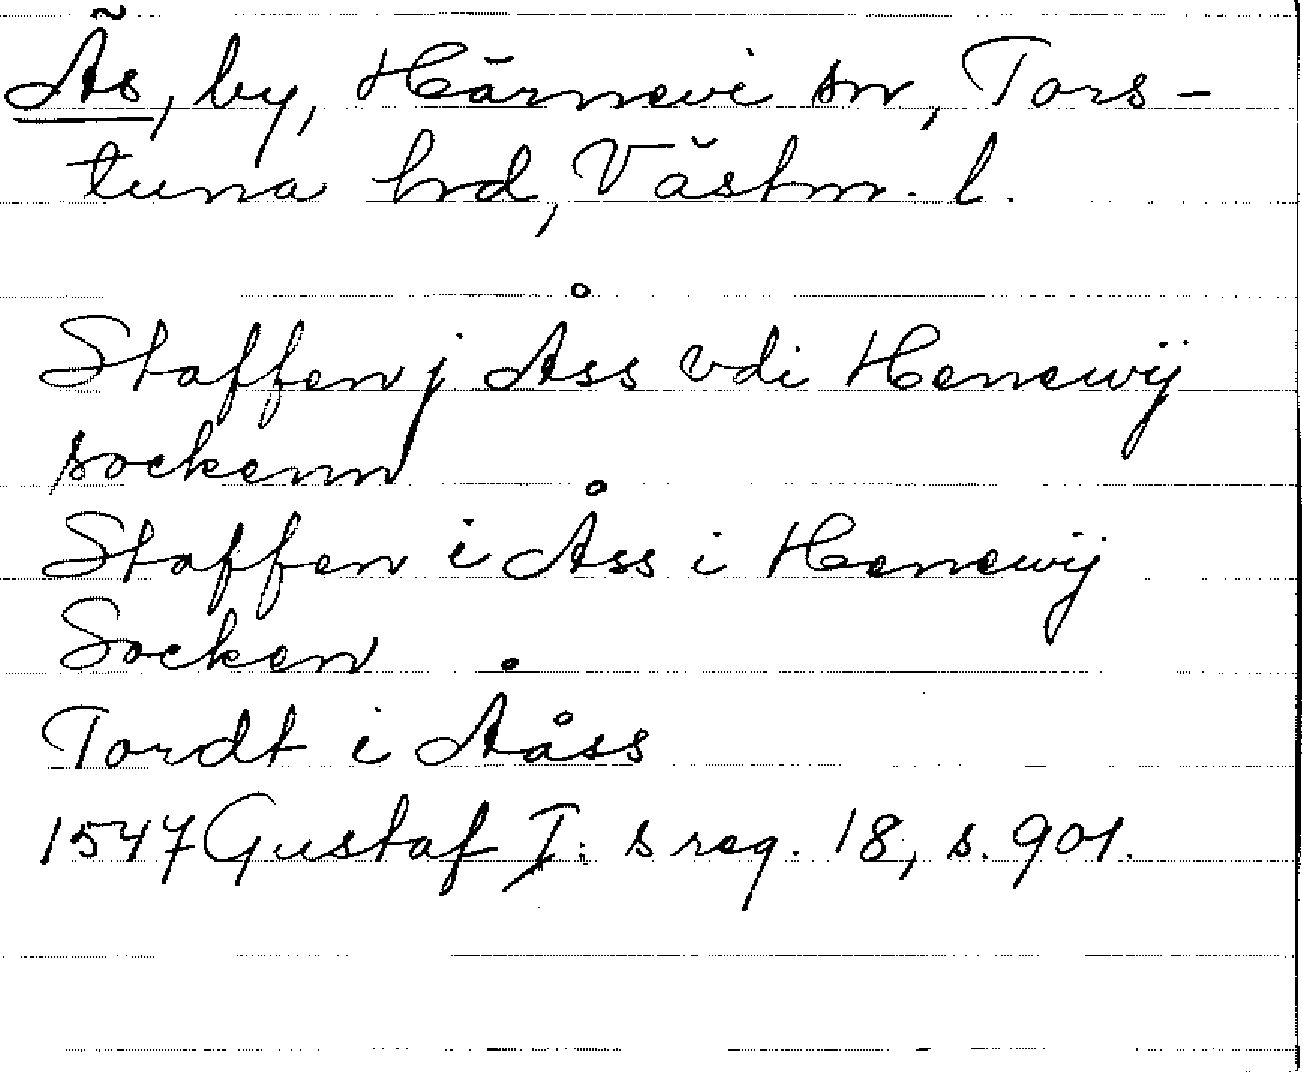 Ås, by, Härnevi sn, Tors-
tuna hrd, Västm. l.
Staffen j Åss vdi Henewij
sockenn
Staffen i Åss i Henewij
Socken
Tordt i Ååss
1547 Gustaf I:s reg. 18, s. 901.